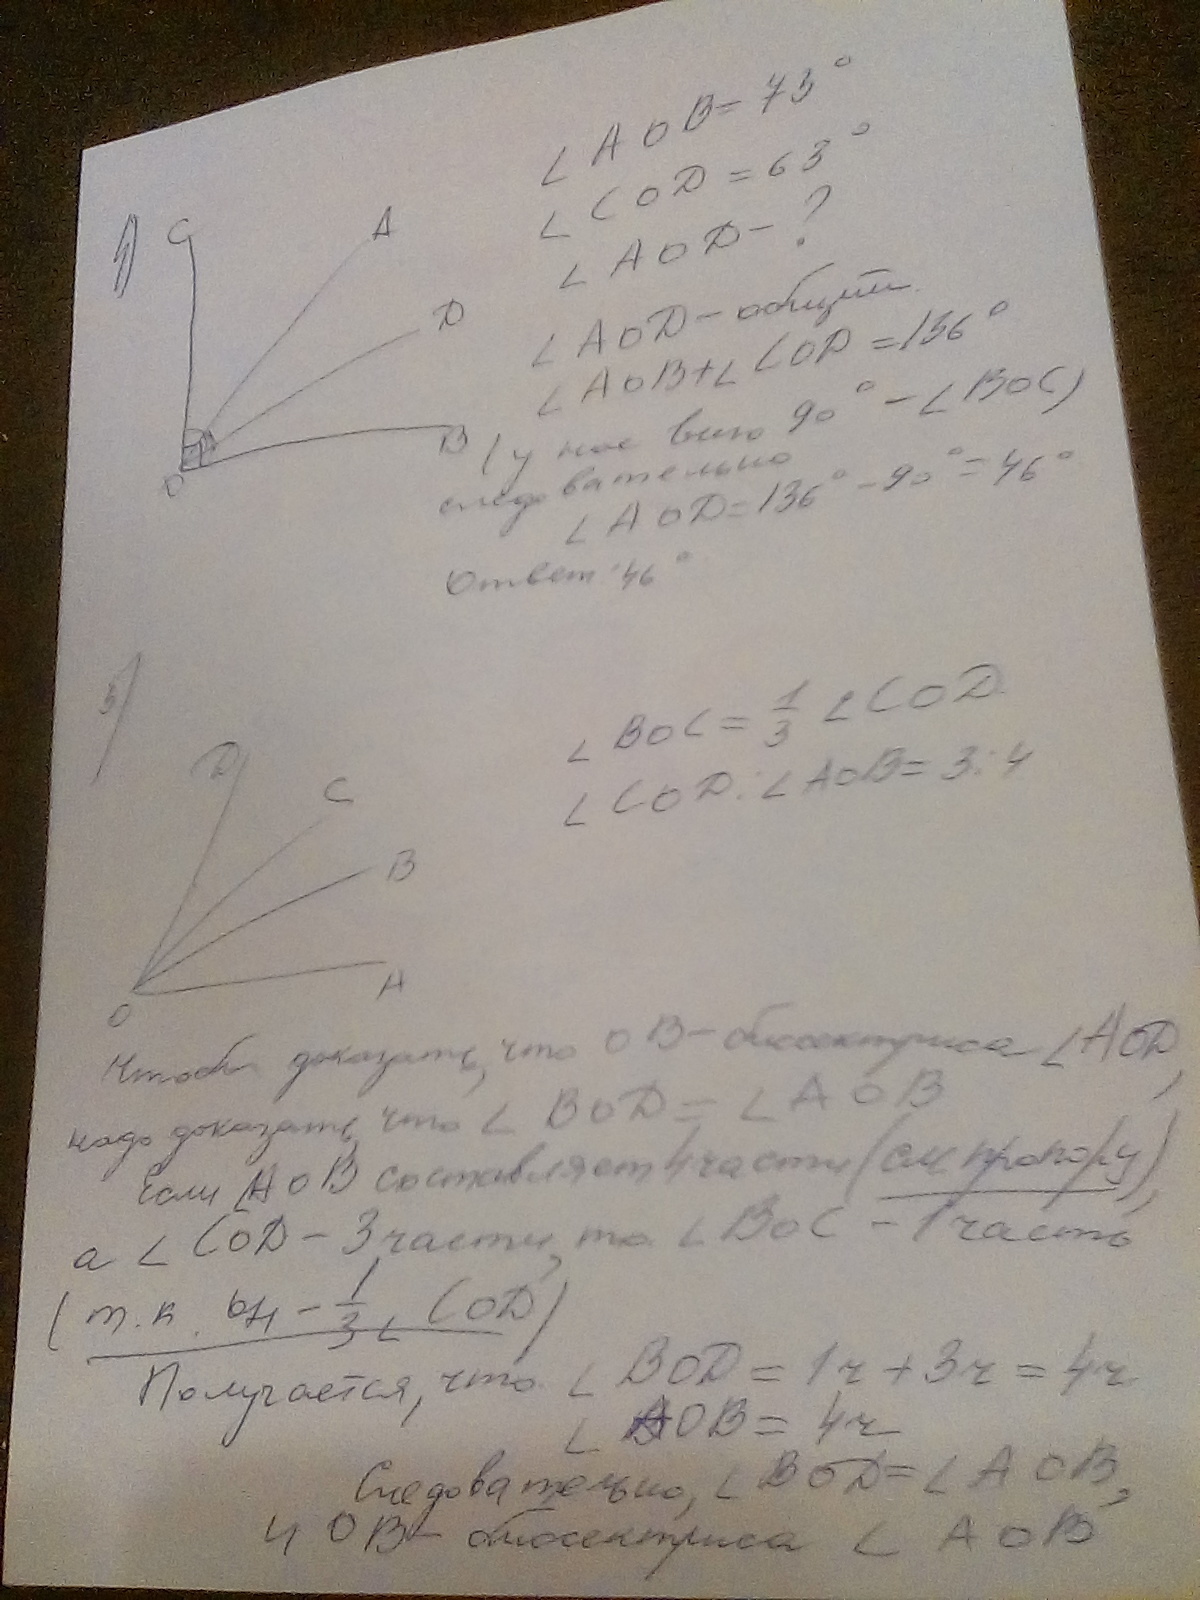 1)
C
A
D
B
O
∠AOB = 73°
∠COD = 63°
∠AOD - ?
∠AOD - общий.
∠AOB + ∠COD = 136°
(у нас было 90° - ∠BOC)
следовательно
∠AOD = 136° - 90° = 46°
Ответ: 46°
D
C
B
A
O
∠BOC = 1/3 ∠COD
∠COD : ∠AOB = 3 : 4
Чтобы доказать, что OB - биссектриса ∠AOD,
надо доказать, что ∠BOD = ∠AOB
Если ∠AOB составляет 4 части (см
а ∠COD - 3 части, то ∠BOC - 1 часть
(т.к. он - 1/3 ∠COD)
Получается, что ∠BOD = 1ч + 3ч = 4ч
∠AOB = 4ч
Следовательно, ∠BOD = ∠AOB,
и OB - биссектриса ∠AOB